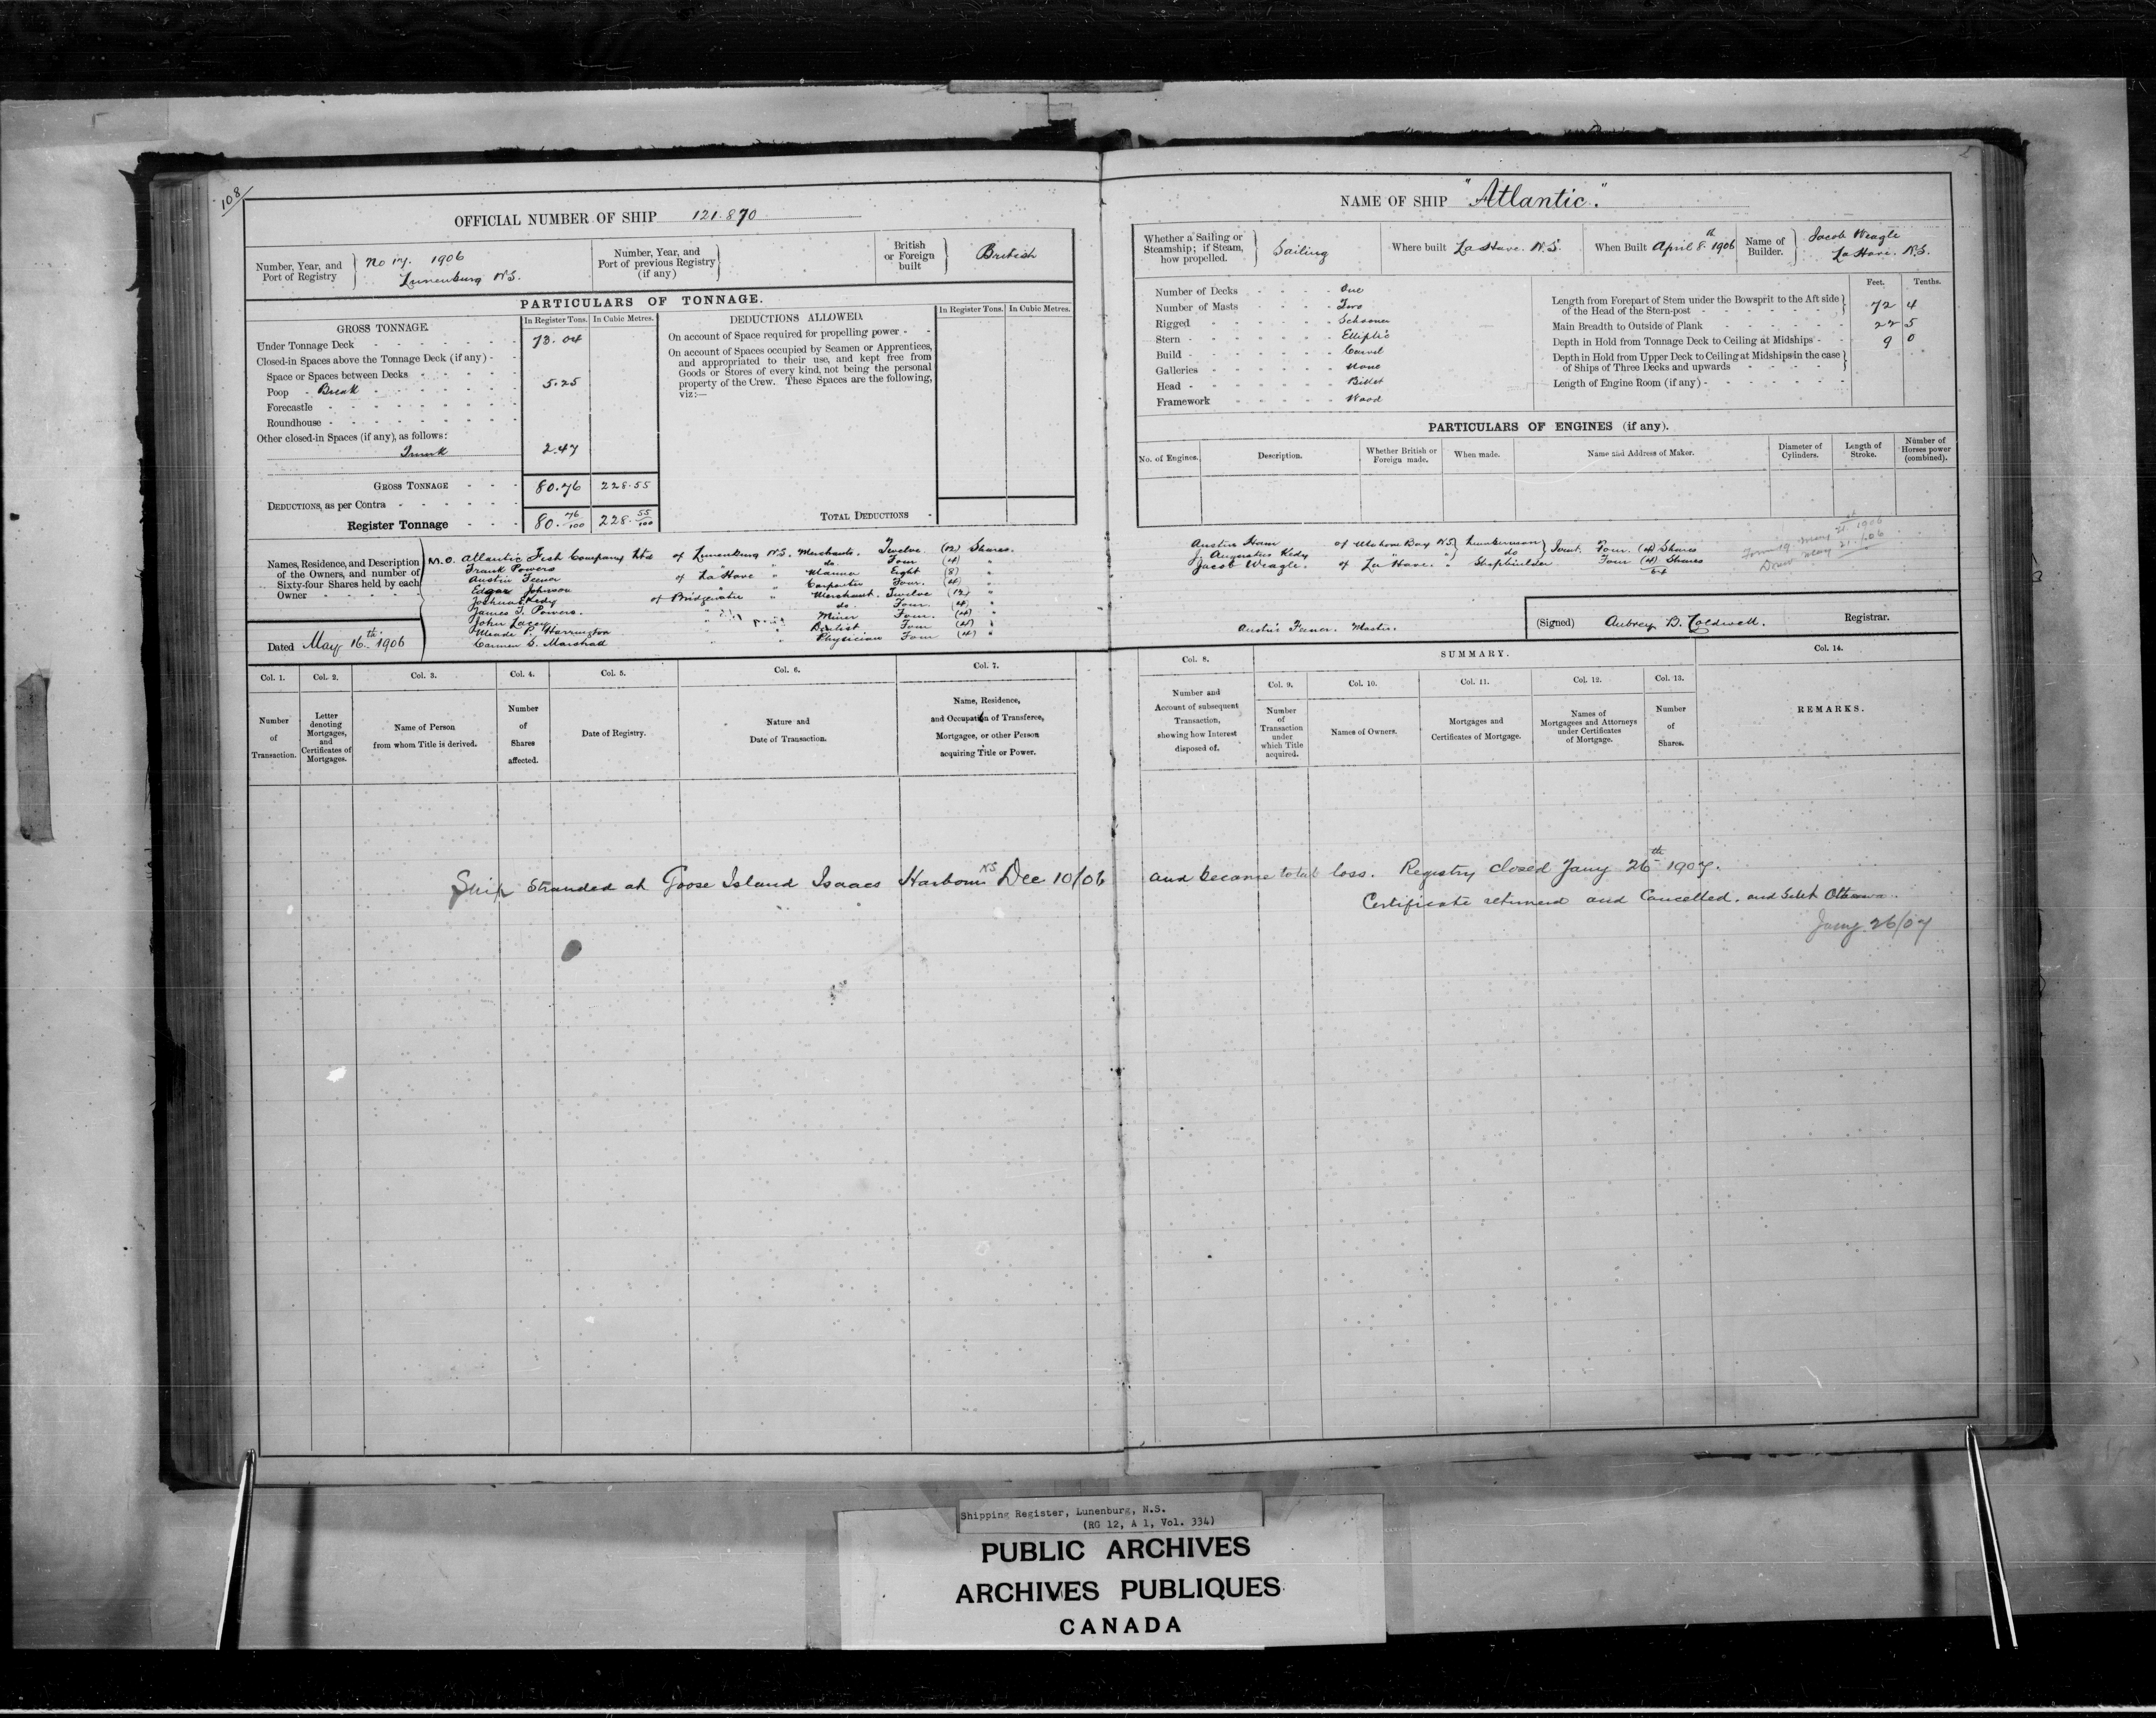 108
OFFICIAL NUMBER OF SHIP 121.870
Number, Year, and Port of Registry } No 17. 1906 Lunenburg N.S.
Number, Year, and Port of previous Registry (if any) }
British or Foreign built } British
PARTICULARS OF TONNAGE.
GROSS TONNAGE. In Register Tons. In Cubic Metres.
Under Tonnage Deck 73.04
Closed-in Spaces above the Tonnage Deck (if any)
Space or Spaces between Decks
Poop Break 5.25
Forecastle
Roundhouse
Other closed-in Spaces (if any), as follows:
Trunk 2.47
GROSS TONNAGE 80.76 228.55
DEDUCTIONS, as per Contra
Register Tonnage 80. 76/100 228. 55/100
DEDUCTIONS ALLOWED. In Register Tons. In Cubic Metres.
On account of Space required for propelling power
On account of Spaces occupied by Seamen or Apprentices,
and appropriated to their use, and kept free from
Goods or Stores of every kind, not being the personal
property of the Crew. These Spaces are the following,
viz:—
TOTAL DEDUCTIONS
Names, Residence, and Description of the Owners, and number of Sixty-four Shares held by each Owner
M.O. Atlantic Fish Company Ltd of Lunenburg N.S. Merchants. Twelve (12) Shares.
Frank Powers " do. Four (4) "
Austin Feener of La Have " Mariner Eight (8) "
Edgar Johnson " " Carpenter Four. (4) "
Joshua Kedy of Bridgewater " Merchant. Twelve (12) "
James T. Powers. do. Four. (4) "
John Lacey " Miner Four. (4) "
Meade P. Harrington " " Dentist Four (4) "
Carmen S. Marshad " " Physician Four (4) "
Dated May 16th. 1906
Col. 1. Col. 2. Col. 3. Col. 4. Col. 5. Col. 6. Col. 7.
Number of Transaction.
Letter denoting Mortgages, and Certificates of Mortgages.
Name of Person from whom Title is derived.
Number of Shares affected.
Date of Registry.
Nature and Date of Transaction.
Name, Residence, and Occupation of Transferee, Mortgagee, or other Person acquiring Title or Power.
NAME OF SHIP "Atlantic".
Whether a Sailing or Steamship; if Steam, how propelled. } Sailing
Where built La Have. N.S.
When Built April 8th. 1906
Name of Builder. } Jacob Weagle La Have. N.S.
Number of Decks One
Number of Masts Two
Rigged Schooner
Stern Elliptic
Build Carvel
Galleries None
Head Billet
Framework Wood
Feet. Tenths.
Length from Forepart of Stem under the Bowsprit to the Aft side of the Head of the Stern-post } 72 4
Main Breadth to Outside of Plank 22 5
Depth in Hold from Tonnage Deck to Ceiling at Midships 9 0
Depth in Hold from Upper Deck to Ceiling at Midships in the case of Ships of Three Decks and upwards }
Length of Engine Room (if any)
PARTICULARS OF ENGINES (if any).
No. of Engines. Description. Whether British or Foreign made. When made. Name and Address of Maker. Diameter of Cylinders. Length of Stroke. Number of Horses power (combined).
Austin Ham of Mahone Bay N.S. } Lumberman } Joint. Four. (4) Shares
J. Augustus Kedy " } do
Jacob Weagle. of La Have. " Shipbuilder Four (4) Shares
64
May 21. 1906
May 21. 1906
Austin Feener. Master.
(Signed) Aubrey B. Caldwell. Registrar.
Col. 8. SUMMARY. Col. 14.
Col. 9. Col. 10. Col. 11. Col. 12. Col. 13.
Number and Account of subsequent Transaction, showing how Interest disposed of.
Number of Transaction under which Title acquired.
Names of Owners.
Mortgages and Certificates of Mortgage.
Names of Mortgagees and Attorneys under Certificates of Mortgage.
Number of Shares.
REMARKS.
Ship stranded at Goose Island Isaacs Harbour NS Dec 10/06 and became total loss. Registry closed Jany 26th 1907.
Certificate returned and Cancelled. and sent Ottawa.
Jany 26/07
Shipping Register, Lunenburg, N.S.
(RG 12, A 1, Vol. 334)
PUBLIC ARCHIVES
ARCHIVES PUBLIQUES
CANADA